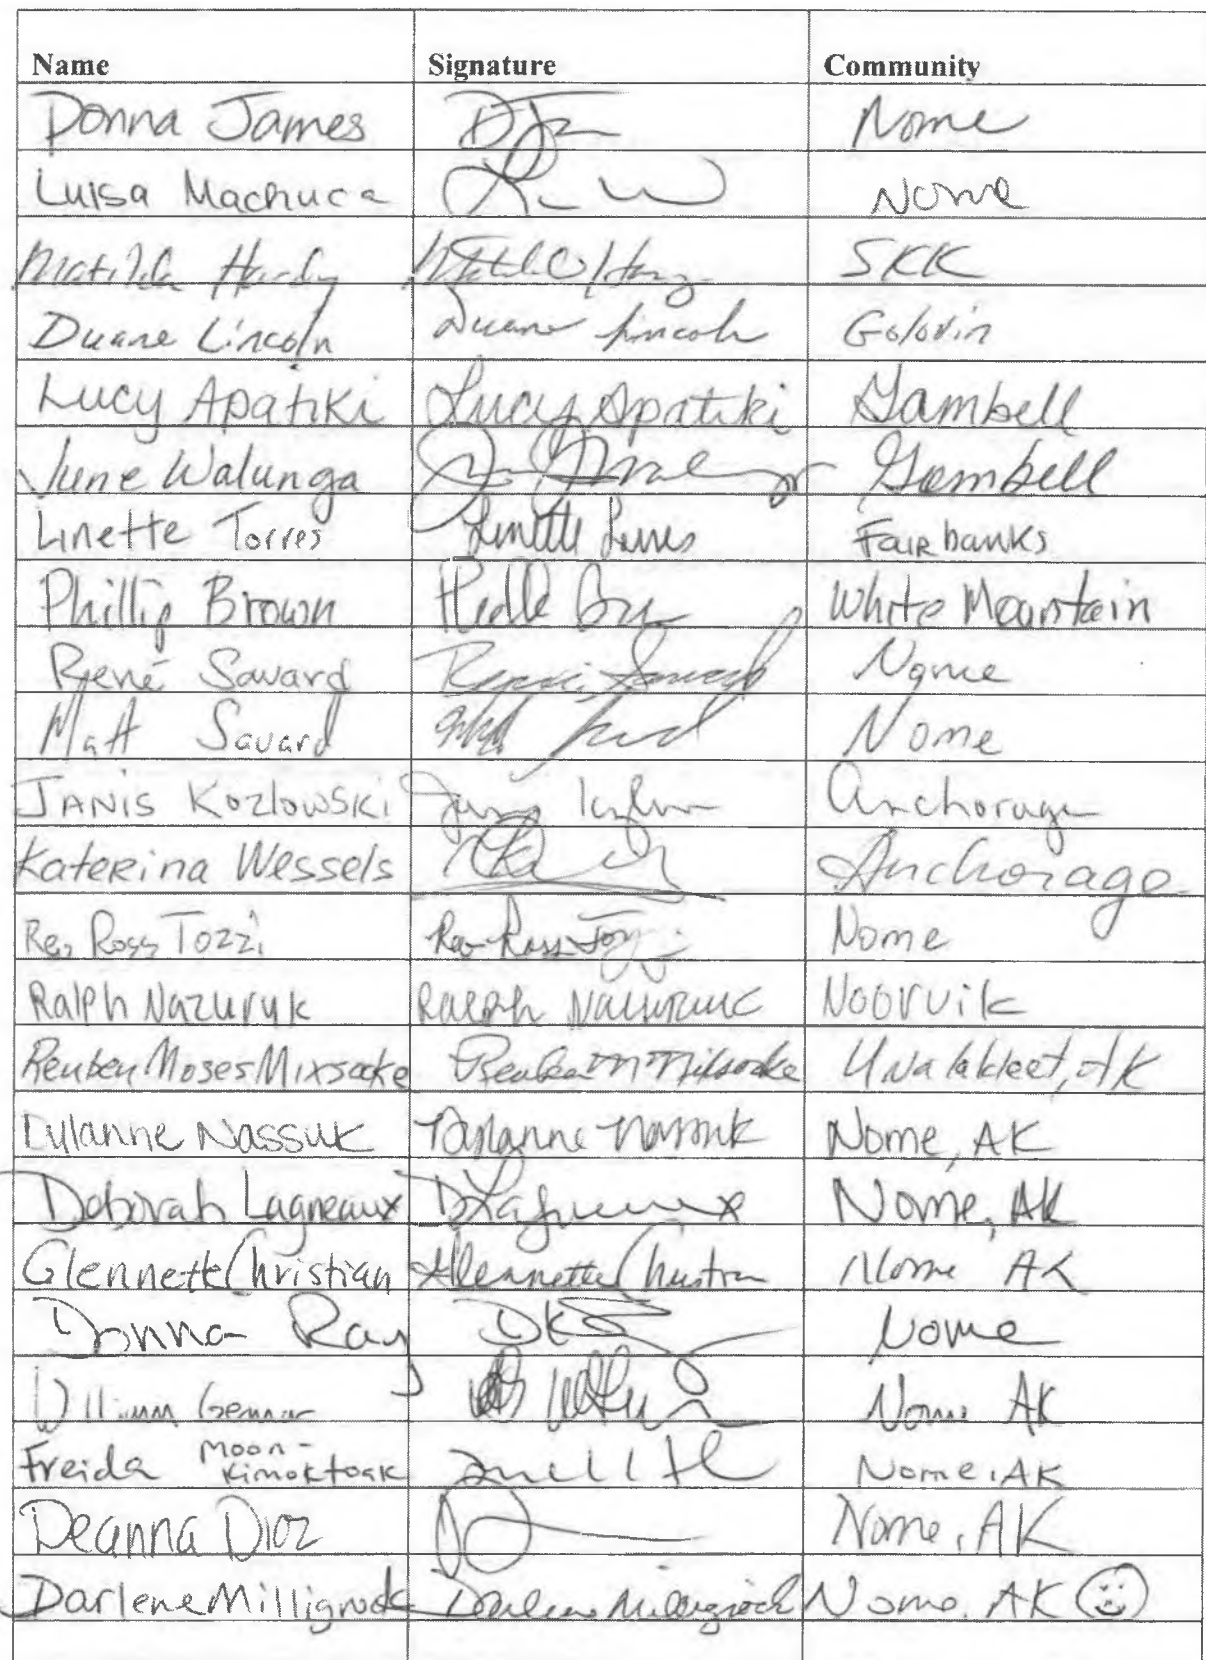 Name Signature Community
Donna James Nome
Luisa Machuca Nome
Matilda Hardy SKK
Duane Lincoln Duane Lincoln Golovin
Lucy Apatiki Lucy Apatiki Gambell
June Walunga Gambell
Linette Torres Linette Torres Fairbanks
Phillip Brown White Mountain
René Savard Savard Nome
Matt Savard Nome
JANIS KOZLOWSKI Anchorage
Katerina Wessels Anchorage
Rev Ross Tozzi Rev Ross Nome
Ralph Nazuruk Ralph Noorvik
Reuben Moses Mixsooke Reuben M Mixsooke Unalakleet, AK
Nassuk Nassuk Nome, AK
Deborah Lagneaux D Lagneaux Nome, AK
Glennette Christian Glennette Christian Nome AK
Donna Ray Nome
William Nome AK
Freida Moon-
Kimoktoak Nome, AK
Deanna Nome, AK
Darlene Millignock Darlene Millignock Nome, AK